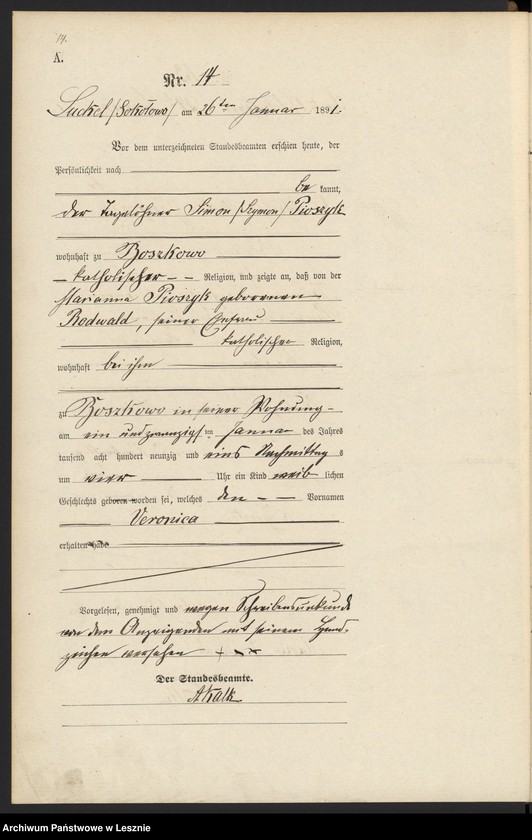 14.
A.
Nr. 14
Luckel /Sokołowo/ am 26ten Januar 1891.
Vor dem unterzeichneten Standesbeamten erschien heute, der
Persönlichkeit nach
be kannt,
der Tagelöhner Simon /Szymon/ Pioszyk
wohnhaft zu Boszkowo
katholischer Religion, und zeigte an, daß von der
Marianna Pioszyk geborenen
Rodwald, seiner Ehefrau
katholischer Religion,
wohnhaft bei ihm
zu Boszkowo in seiner Wohnung
am ein und zwanzigsten Januar des Jahres
tausend acht hundert neunzig und eins Nachmittag s
um vier Uhr ein Kind weib lichen
Geschlechts geboren worden sei, welches den Vornamen
Veronica
erhalten habe
Vorgelesen, genehmigt und wegen Schreibensunkunde
von dem Anzeigenden mit seinem Hand-
zeichen versehen +++
Der Standesbeamte.
AKalk
Archiwum Państwowe w Lesznie